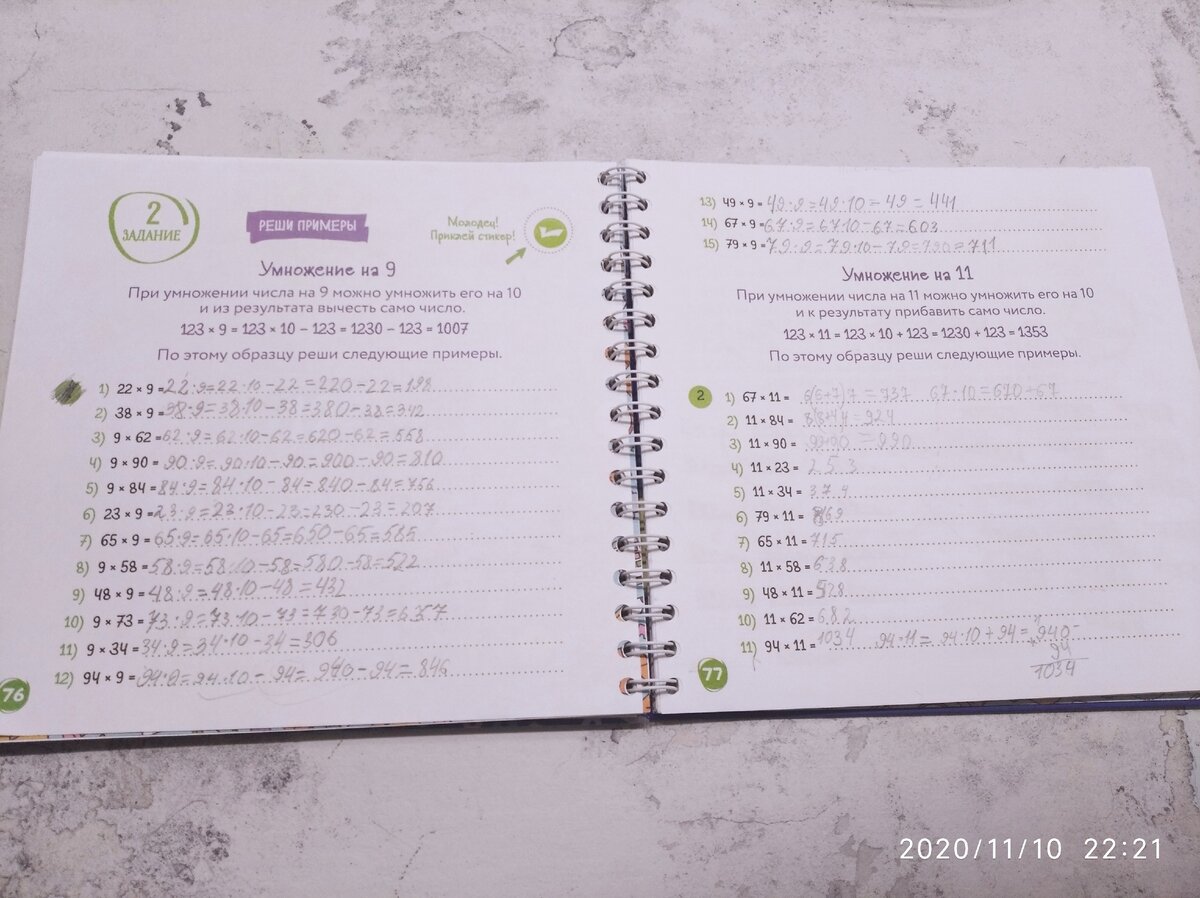 2
ЗАДАНИЕ
РЕШИ ПРИМЕРЫ
Молодец!
Приклей стикер!
Умножение на 9
При умножении числа на 9 можно умножить его на 10
и из результата вычесть само число.
123 × 9 = 123 × 10 – 123 = 1230 – 123 = 1007
По этому образцу реши следующие примеры.
1) 22 × 9 = 22·9=22·10-22=220-22=198
2) 38 × 9 = 38·9=38·10-38=380-38=342
3) 9 × 62 = 62·9=62·10-62=620-62=558
4) 9 × 90 = 90·9=90·10-90=900-90=810
5) 9 × 84 = 84·9=84·10-84=840-84=756
6) 23 × 9 = 23·9=23·10-23=230-23=207
7) 65 × 9 = 65·9=65·10-65=650-65=585
8) 9 × 58 = 58·9=58·10-58=580-58=522
9) 48 × 9 = 48·9=48·10-48=432
10) 9 × 73 = 73·9=73·10-73=730-73=657
11) 9 × 34 = 34·9=34·10-34=306
12) 94 × 9 = 94·9=94·10-94=940-94=846
76
13) 49 × 9 = 49·9=49·10=49=441
14) 67 × 9 = 67·9=67·10-67=603
15) 79 × 9 = 79·9=79·10-79=790=711
Умножение на 11
При умножении числа на 11 можно умножить его на 10
и к результату прибавить само число.
123 × 11 = 123 × 10 + 123 = 1230 + 123 = 1353
По этому образцу реши следующие примеры.
2
1) 67 × 11 = 6(6+7)7=737 67·10=670+67
2) 11 × 84 = 8(8+4)4=924
3) 11 × 90 = =990
4) 11 × 23 = 253
5) 11 × 34 = 374
6) 79 × 11 = 869
7) 65 × 11 = 715
8) 11 × 58 = 638
9) 48 × 11 = 528
10) 11 × 62 = 682
11) 94 × 11 = 1034 94·11=94·10+94=940
94
1034
77
2020/11/10 22:21